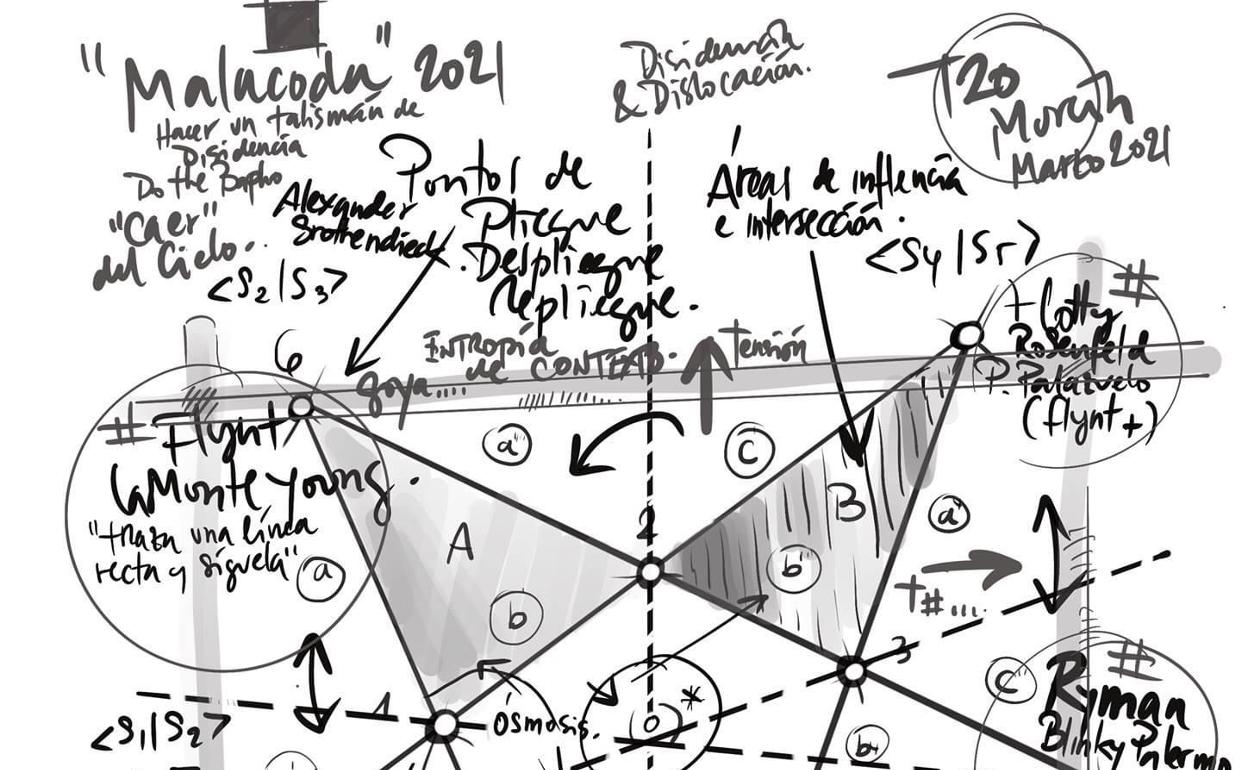 "Malacoda" 2021
Hacer un talismán de
Disidencia
Do the Bapho
"Caer"
del Cielo.
Disidencia
& Dislocación.
T20
Marzo 2021
Alexander
Puntos de
Pliegue
.Despliegue
Repliegue.
Áreas de influencia
e intersección.
<S2|S3>
<S4|S5>
6
ENTROPÍA
de CONTEXTO.
tensión
goya....
#
+ Lotty
Rosenfeld
P. Palazuelo
(flynt+)
# Flynt/
LaMonte Young.
"traza una línea
recta y síguela"
a
a'
c
A
b
2
B
b'
a'
T#....
3
c'
1
ósmosis.
*
<S1|S2>
#
Ryman
Blinky Palermo